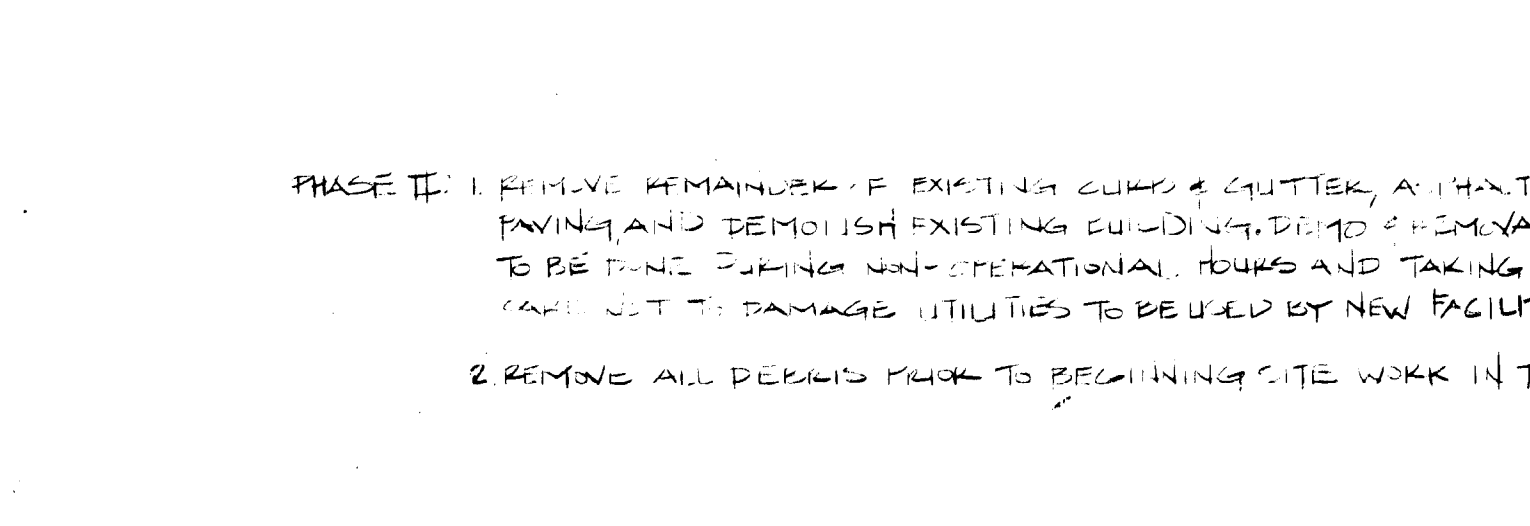 PHASE II: 1. REMOVE REMAINDER OF EXISTING CURB & GUTTER, ASPHALT
PAVING, AND DEMOLISH EXISTING BUILDING. DEMO & REMOVA
TO BE DONE DURING NON-OPERATIONAL HOURS AND TAKING
CARE NOT TO DAMAGE UTILITIES TO BE USED BY NEW FACILIT
2. REMOVE ALL DEBRIS PRIOR TO BEGINNING SITE WORK IN T